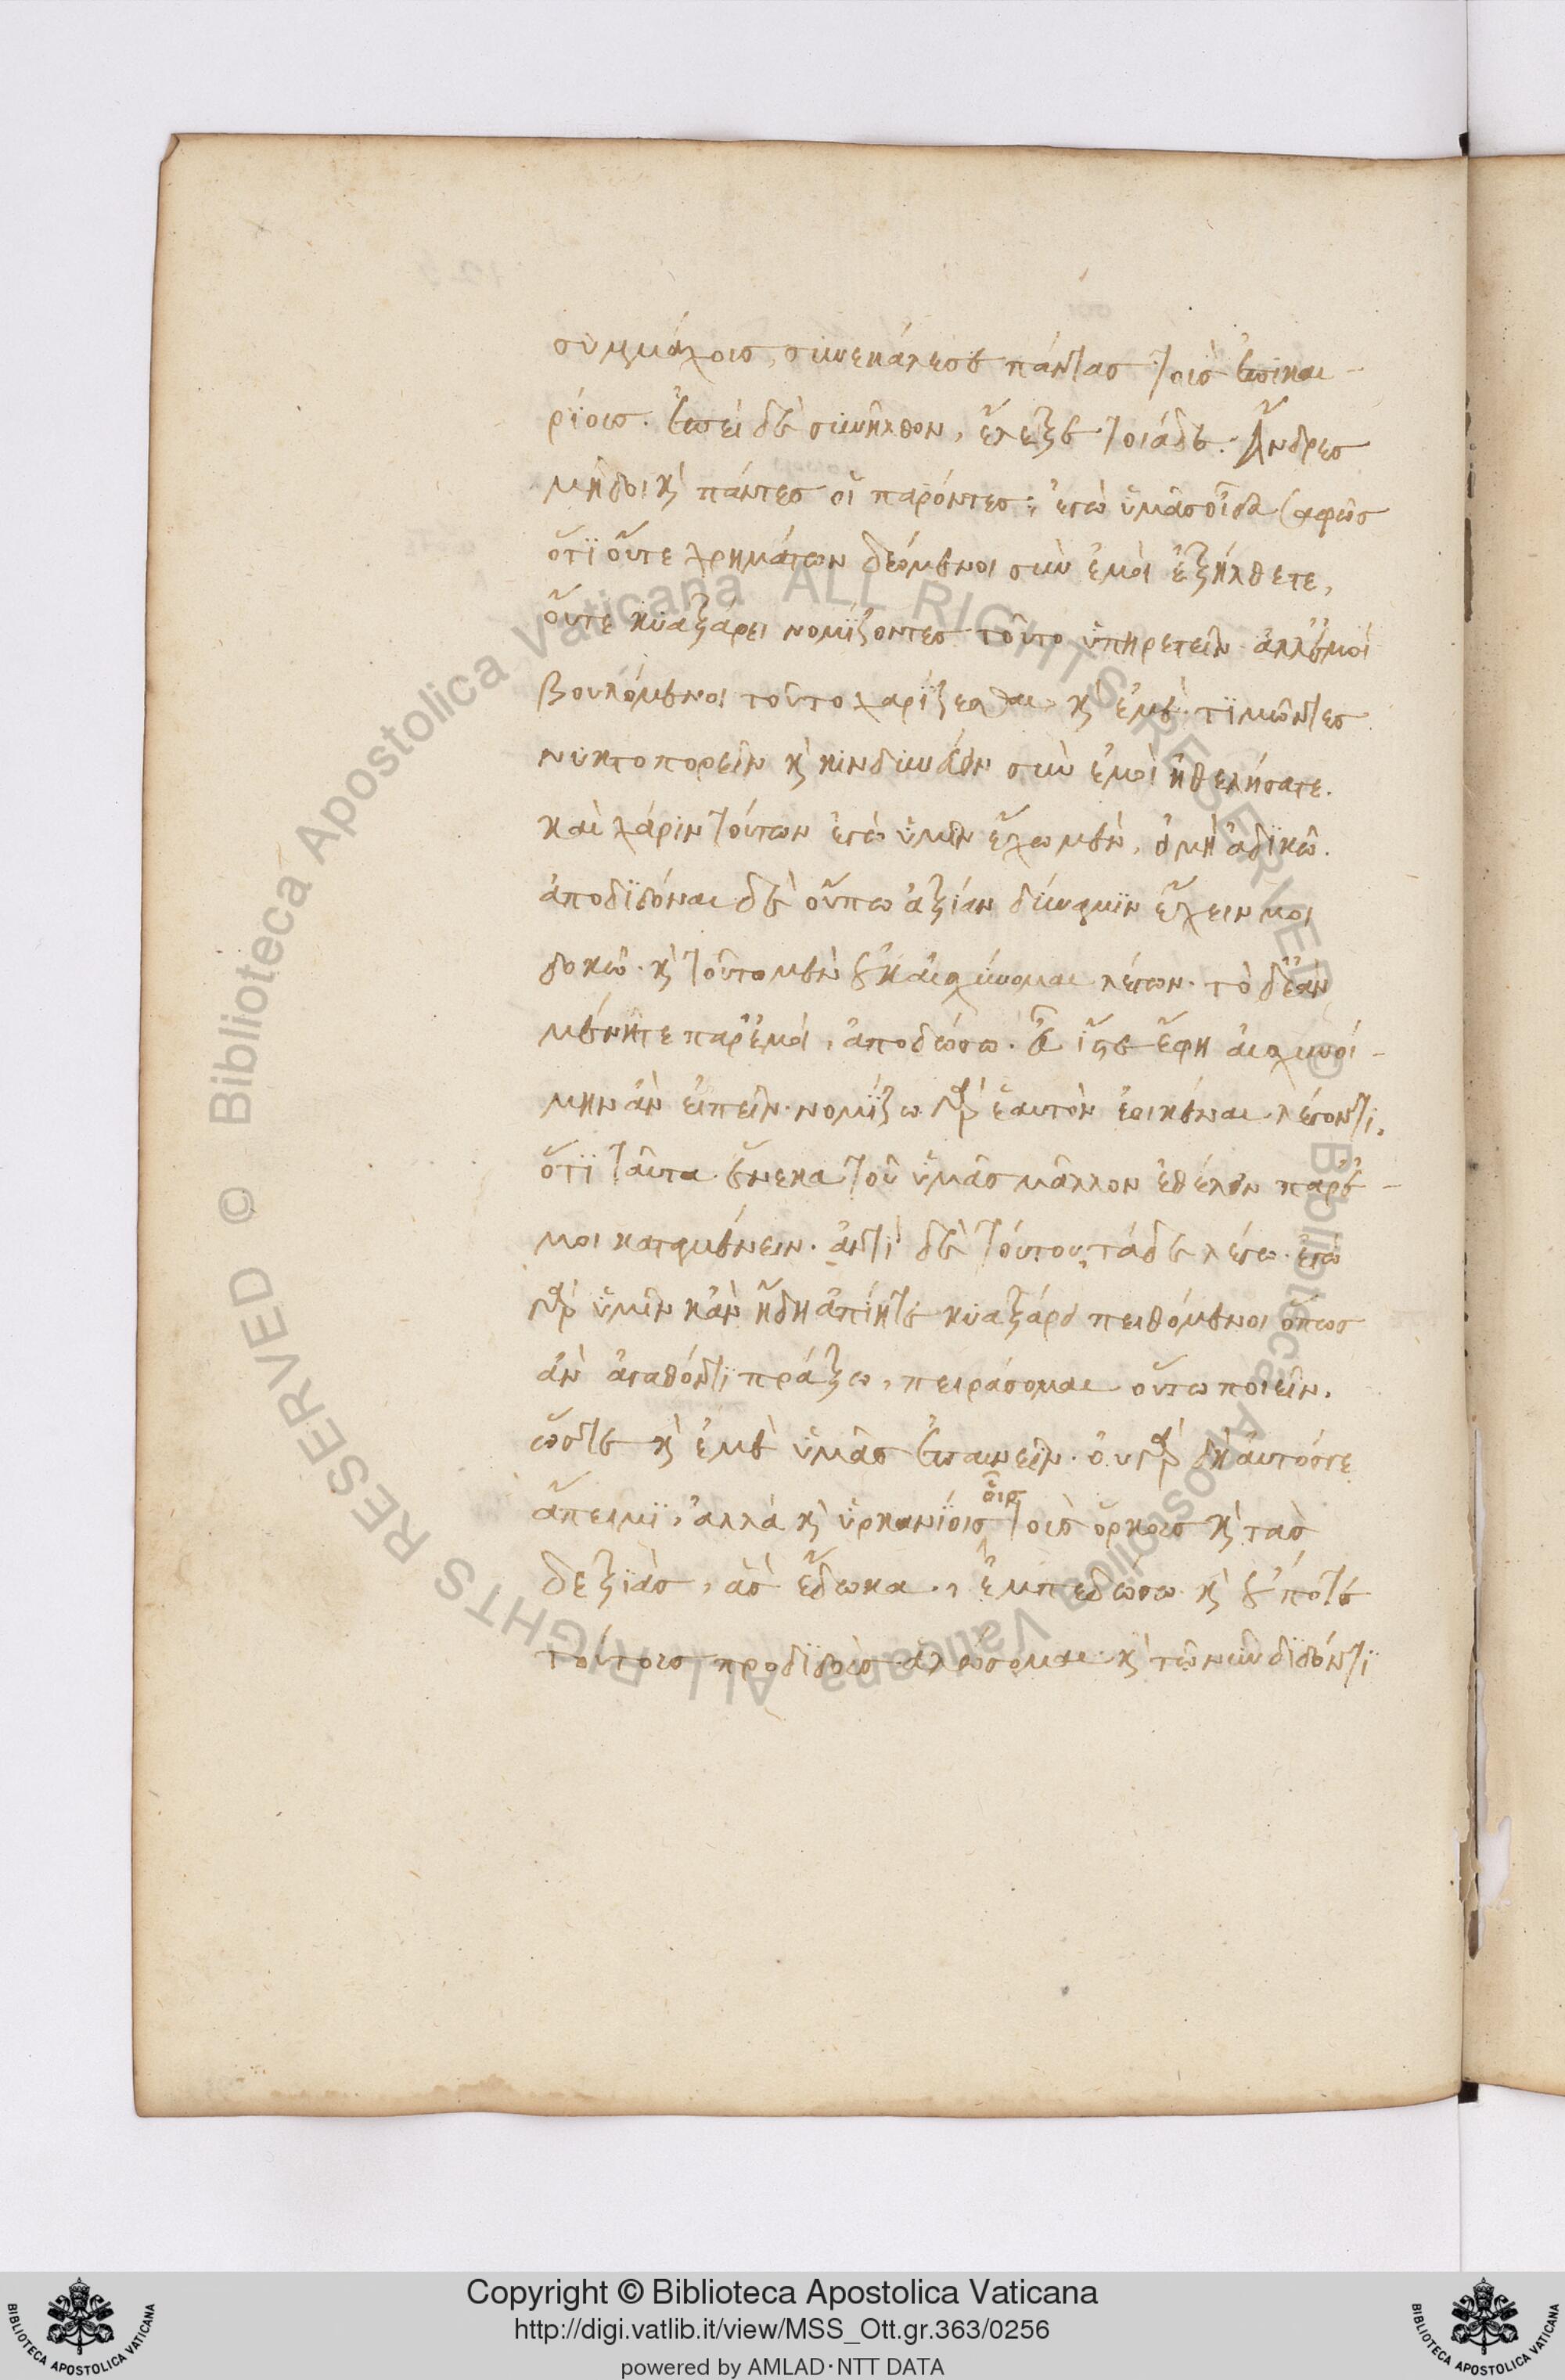 συμμάχοις, συνεκάλεσε πάντας τοὺς ἐπικαι-
ρίους. ἐπεὶ δὲ συνῆλθον, ἔλεξε τοιάδε. Ἄνδρες
μῆδοι κὶ πάντες οἱ παρόντες· ἐγὼ ὑμᾶς οἶδα σαφῶς
ὅτϊ οὔτε χρημάτων δεόμενοι σὺν ἐμοὶ ἐξήλθετε,
οὔτε κυαξάρει νομΐζοντες τοῦτο ὑπηρετεῖν· ἀλλ' ἐμοὶ
βουλόμενοι τοῦτο χαρίζεσθαι κὶ ἐμὲ τϊμῶντες
νυκτοπορεῖν κὶ κινδυνεύειν σὺν ἐμοὶ ἠθελήσατε.
καὶ χάριν τούτων ἐγὼ ὑμῖν ἔχω μὲν, εἰ μὴ ἀδϊκῶ.
ἀποδϊδόναι δὲ οὔπω ἀξίαν δύναμϊν ἔχειν μοι
δοκῶ· κὶ τοῦτο μὲν οὐκ αἰσχύνομαι λέγων· τὸ δ' ἐὰν
μένητε παρ' ἐμοὶ, ἀποδώσω. εὖ ἴστε ἔφη αἰσχυνοί-
μην ἂν εἰπεῖν· νομΐζω γὰρ ἑαυτὸν ἐοικέναι λέγοντι,
ὅτϊ ταῦτα ἕνεκα τοῦ ὑμᾶς μᾶλλον ἐθέλειν παρ' ἐ-
μοι καταμένειν. ἀντὶ δὲ τούτου, τάδε λέγω· ἐγὼ
γὰρ ὑμῖν κἂν ἤδη ἀπίητε κυαξάρει πειθόμενοι ὅπως
ἂν ἀγαθόν τϊ πράξω, πειράσομαι οὕτω ποιεῖν,
ὥστε κὶ ἐμὲ ὑμᾶς ἐπαινεῖν. οὐ γὰρ δὴ αὐτός γε
ἄπειμϊ, ἀλλὰ κὶ ὑρκανΐοις οἷς τοὺς ὅρκους κὶ τὰς
δεξϊὰς, ἃς ἔδωκα, ἐμπεδώσω κὶ οὔποτε
τούτους προδϊδοὺς ἁλώσομαι· κὶ τῷ νῦν δϊδόντϊ
Copyright © Biblioteca Apostolica Vaticana
http://digi.vatlib.it/view/MSS_Ott.gr.363/0256
powered by AMLAD·NTT DATA